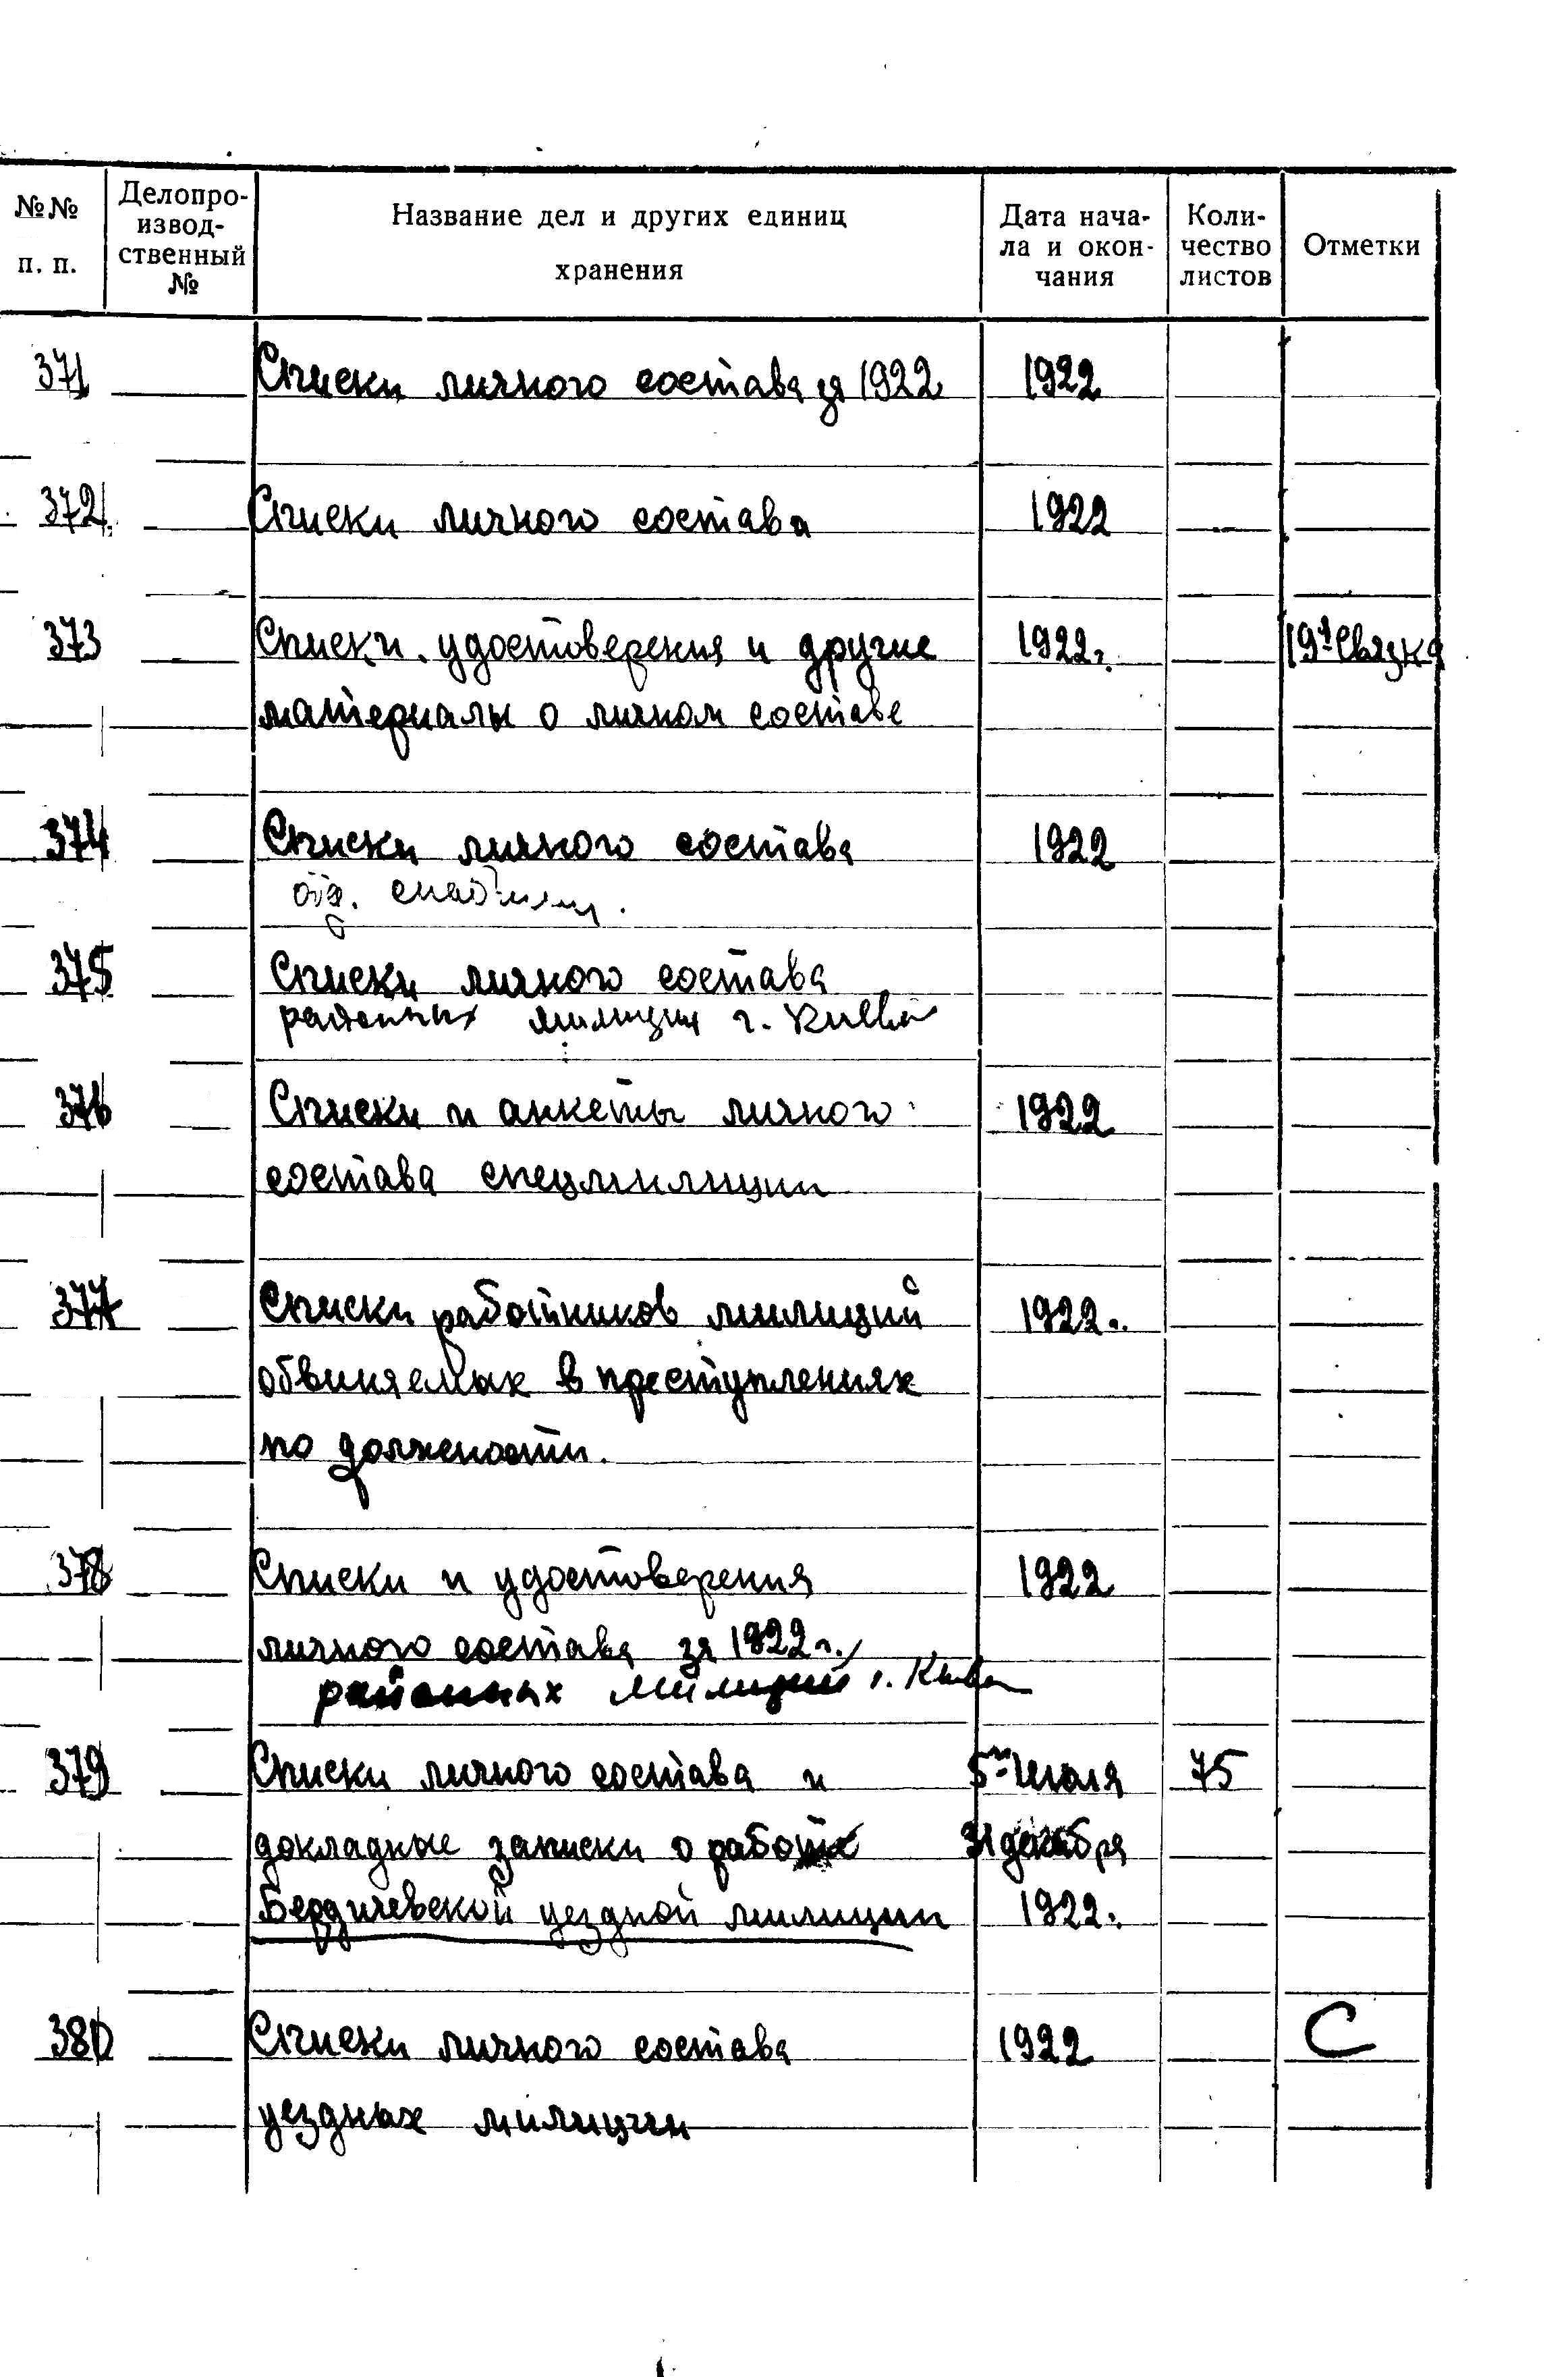 №№ п. п.
Делопро-
извод-
ственный
№
Название дел и других единиц
хранения
Дата нача-
ла и окон-
чания
Коли-
чество
листов
Отметки
371 Списки личного состава за 1922 1922
372 Списки личного состава 1922
373 Списки, удостоверения и другие 1922г. 19я Связка
материалы о личном составе
374 Списки личного состава 1922
отд.
375 Списки личного состава
районных милиций г. Киева
376 Списки и анкеты личного 1922
состава спецмилиции
377 Списки работников милиций 1922г.
обвиняемых в преступлениях
по должности.
378 Списки и удостоверения 1922
личного состава за 1922г.
районных милиций г. Киева
379 Списки личного состава и 5го Июля 75
докладные записки о работе 31 декабря
Бердичевской уездной милиции 1922г.
380 Списки личного состава 1922 С
уездных милиции